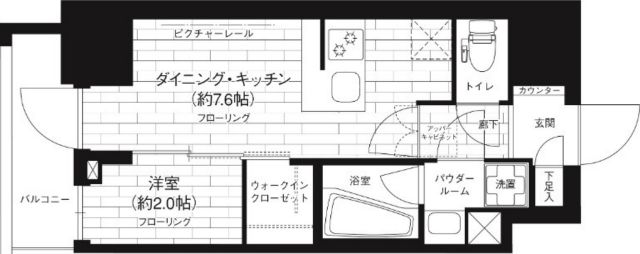 ピクチャーレール
ダイニング・キッチン
(約7.6帖)
フローリング
トイレ
カウンター
アッパー
キャビネット
廊下
玄関
バルコニー
洋室
(約2.0帖)
フローリング
ウォークイン
クローゼット
浴室
パウダー
ルーム
洗置
下足入